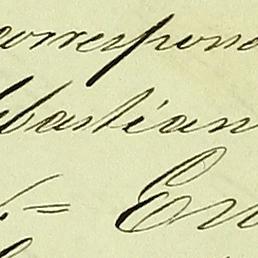 correspond
ebastian
= En